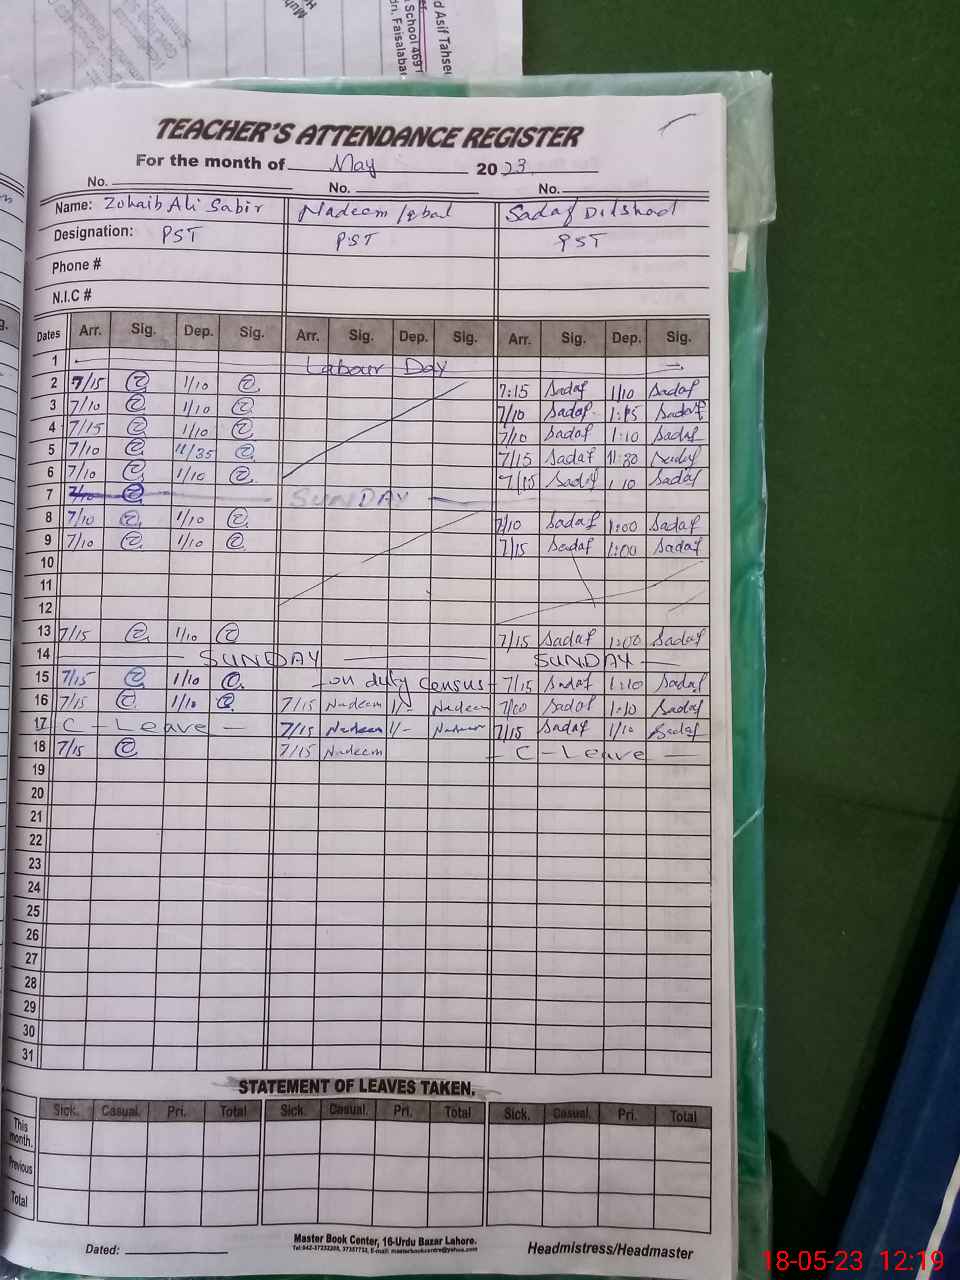 d Asif Tahse
School 469
dn, Faisalaba
TEACHER'S ATTENDANCE REGISTER
For the month of May 2023
No. No. No.
Name: Zohaib Ali Sabir Nadeem Iqbal Sadaf Dilshad
Designation: PST PST PST
Phone #
N.I.C #
Dates Arr. Sig. Dep. Sig. Arr. Sig. Dep. Sig. Arr. Sig. Dep. Sig.
1 Labour Day
2 7/15 1/10 7:15 Sadaf 1/10 Sadaf
3 7/10 1/10 7/10 Sadaf 1:15 Sadaf
4 7/15 1/10 7/10 Sadaf 1:10 Sadaf
5 7/10 11/35 7/15 Sadaf 11:30 Sadaf
6 7/10 1/10 7/15 Sadaf 1:10 Sadaf
7 7/10 SUNDAY
8 7/10 1/10 7/10 Sadaf 1:00 Sadaf
9 7/10 1/10 7/15 Sadaf 1:00 Sadaf
10
11
12
13 7/15 1/10 7/15 Sadaf 1:00 Sadaf
14 SUNDAY SUNDAY
15 7/15 1/10 on duty Census 7/15 Sadaf 1:10 Sadaf
16 7/15 1/10 7/15 Nadeem 1/- Nadeem 7/10 Sadaf 1:10 Sadaf
17 C-Leave 7/15 Nadeem 1/- Nadeem 7/15 Sadaf 1/10 Sadaf
18 7/15 7/15 Nadeem C-Leave
19
20
21
22
23
24
25
26
27
28
29
30
31
STATEMENT OF LEAVES TAKEN.
Sick. Casual. Pri. Total Sick. Casual. Pri. Total Sick. Casual. Pri. Total
This month.
Previous
Total
Master Book Center, 16-Urdu Bazar Lahore.
Dated: Headmistress/Headmaster
18-05-23 12:19